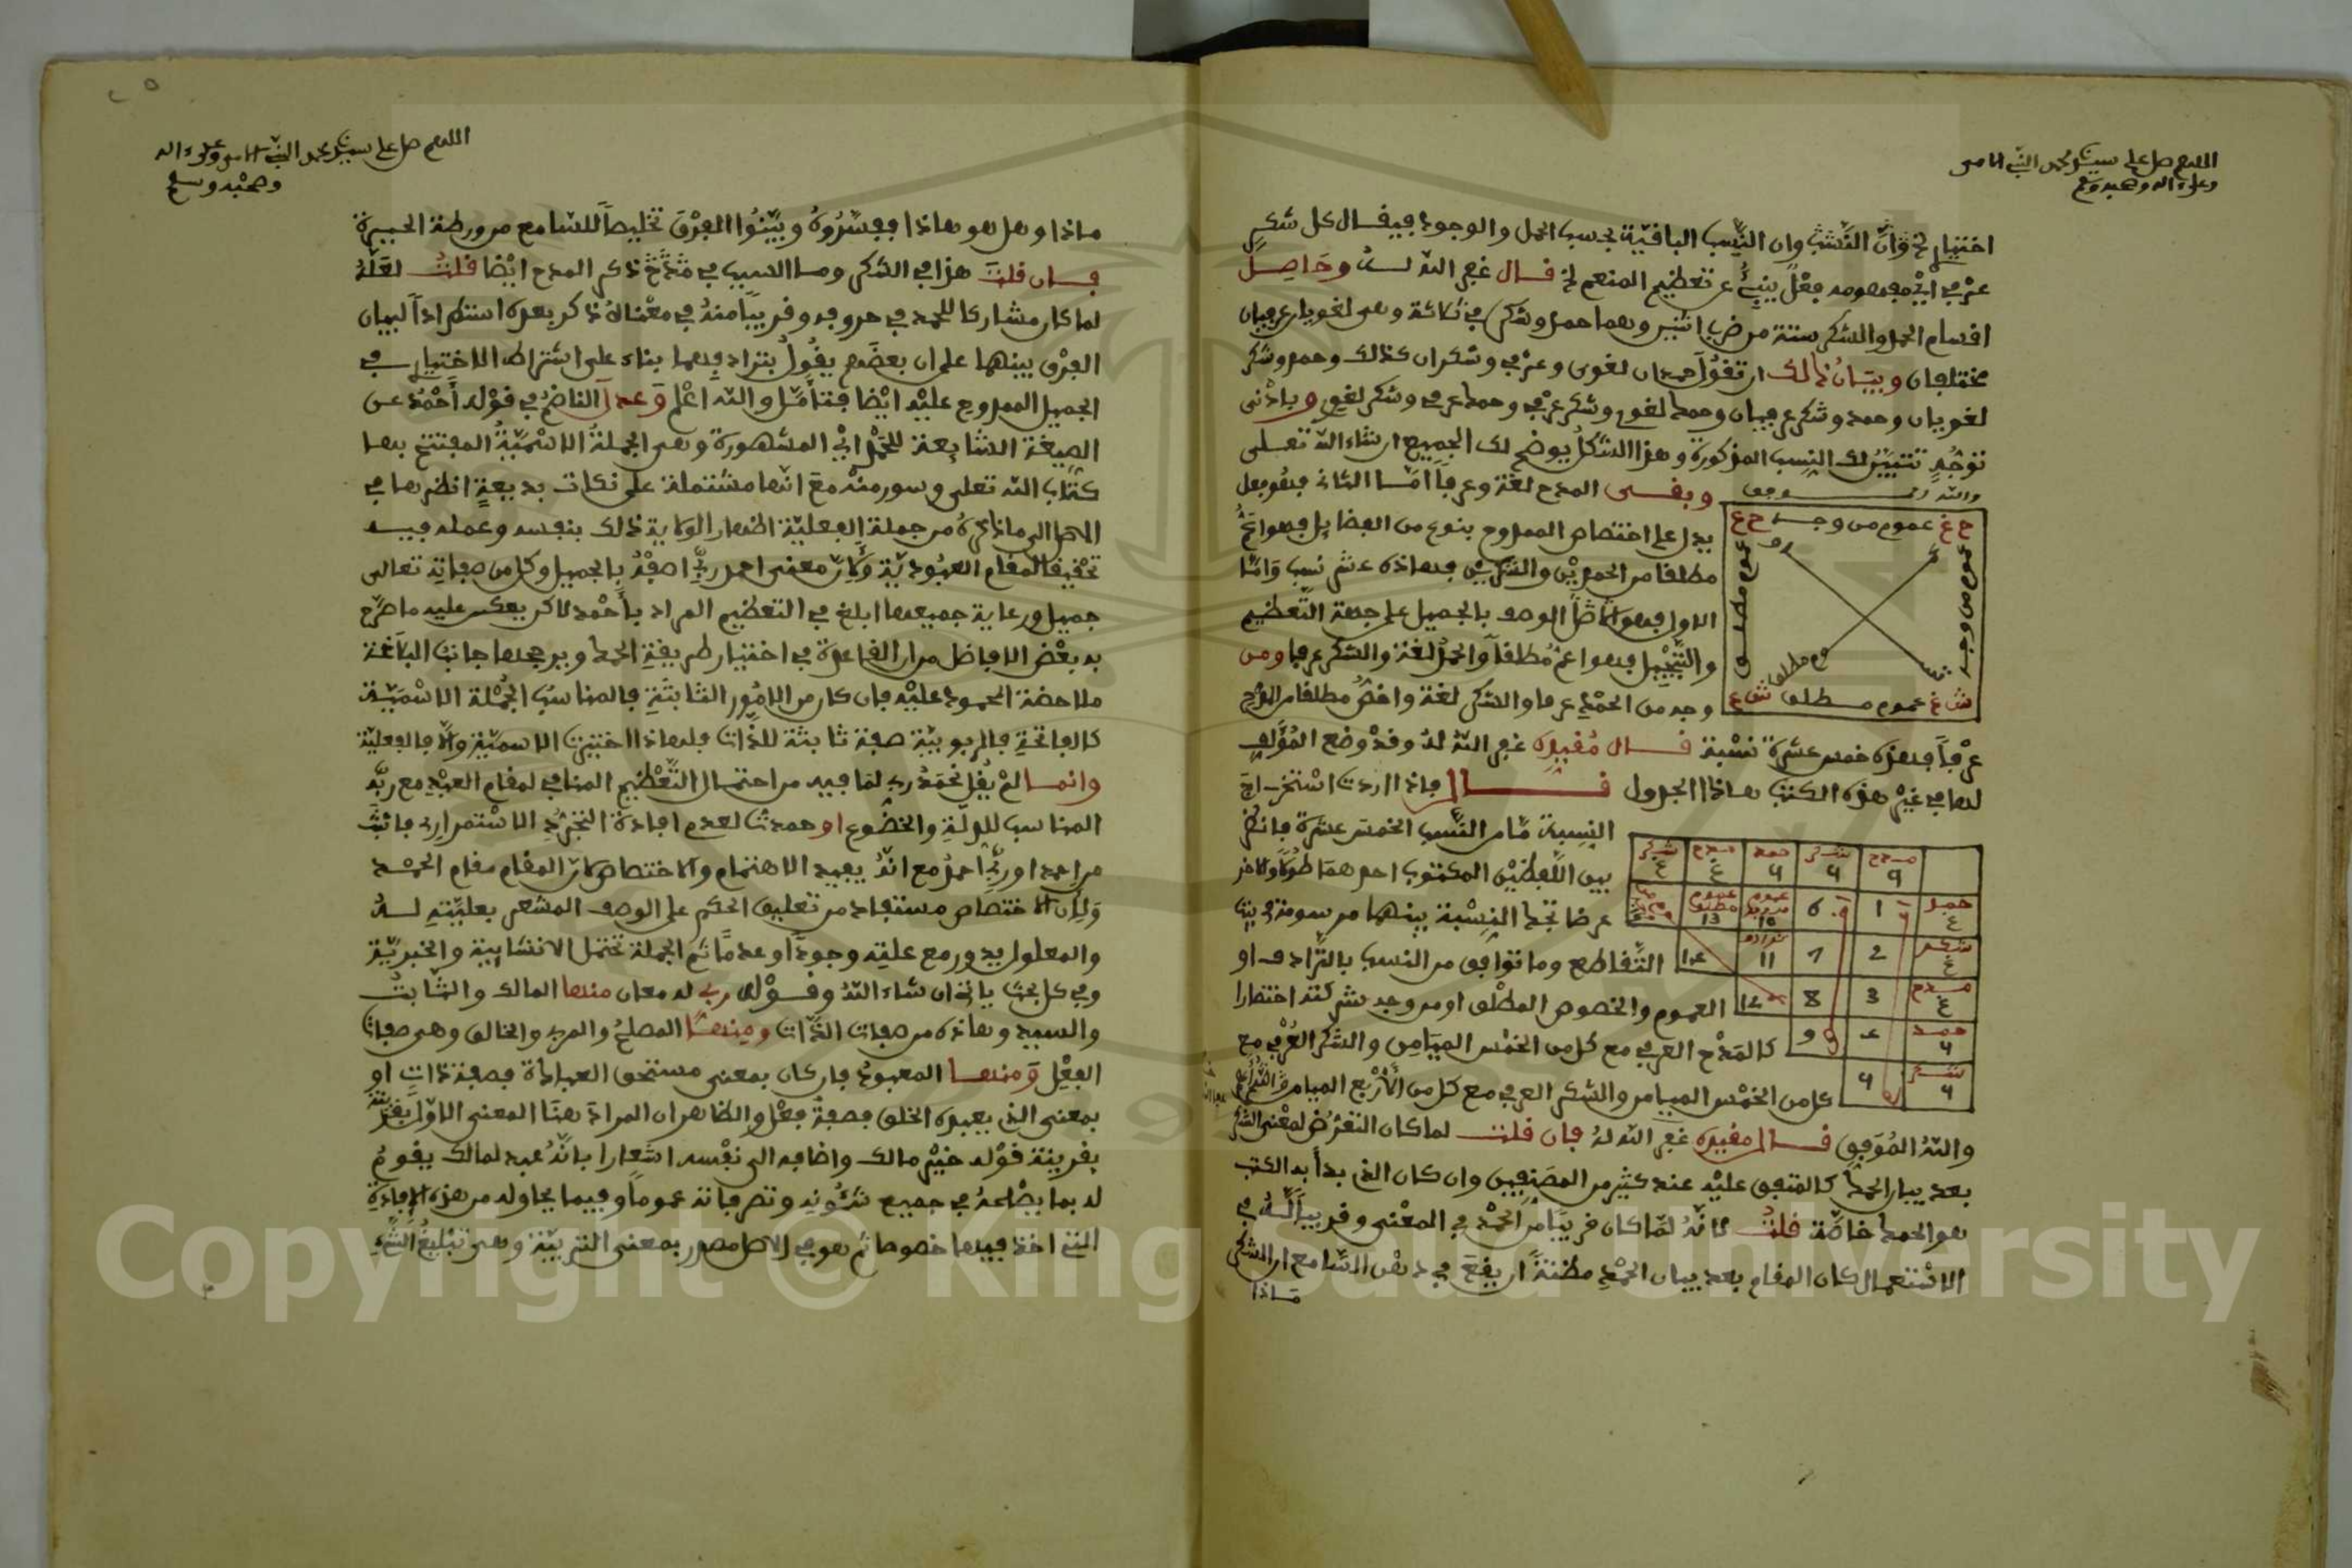 اللهم صل على سيدنا محمد النبي الامي
وعلى ءاله وصحبه وسلم
اختيار وان النسب الباقية بحسب الحمل والوجود فيقال كل شكر
عرفي اي مفهومه فعل ينبئ عن تعظيم المنعم الخ قال غفر الله له وحاصل
اقسام الحمد والشكر ستة من ضرب اثنين وهما حمد وشكر في ثلاثة وهي لغويان عرفيان
مختلفان وبيان ذالك ان تقول حمدان لغوى وعرفي وشكران كذلك وحمد وشكر
لغويان وحمد وشكر عرفيان وحمد لغوي وشكر عرفي وحمد عرفي وشكر لغوي وبادنى
توجه تتبين لك النسب المذكورة وهذا الشكل يوضح لك الجميع ان شاء الله تعلى
وبقى المدح لغة وعرفا اما الثانى فهو فعل
يدل على اختصاص الممدوح بنوع من الفضايل فهو اعم
مطلقا من الحمدين والشكرين فهاذه عشر نسب واما
الاول فهو الوصف بالجميل على جهة التعظيم
والتبجيل فهو اعم مطلقا والحمد لغة والشكر عرفا ومن
وجه من الحمد عرفا والشكر لغة واخص مطلقا من المدح
ح غ عموم من وجه ح ع
عموم من وجه
عموم مطلق
ترادف
عموم مطلق
ش غ عموم مطلق ش ع
عرفا فهذه خمس عشرة نسبة قال مقيده غفر الله له وقد وضع المؤلف
لها في غير هذه الكتب هاذا الجدول قال فاذا اردت استخراج
النسبة ما من النسب الخمس عشرة فانظر
بين اللفظين المكتوب احدهما طولا والاخر
عرضا تجد النسبة بينهما مرسومة في بيت
التقاطع وما توافق من النسب بالترادف او
العموم والخصوص المطلق او من وجه شركته اختصارا
كالمدح العرفي مع كل من الخمس الميامن والشكر العرفي مع
كل من الخمس الميامن والشكر العرفي مع كل من الاربع الميامن
والله الموفق قال مقيده غفر الله له فان قلت لما كان التعرض لمعنى الشكر
بعد بيان الحمد كالمتفق عليه عند كثير من المصنفين وان كان الذي بدأ به الكتب
هو الحمد خاصة قلت لانه لما كان قريبا من الحمد في المعنى وقريبا له في
الاستعمال كان المقام بعد بيان الحمد مظنة ان يقع في ذهن السامع ان الشكر
ماذا
اللهم صل على سيدنا محمد النبي الامي وعلى ءاله
وصحبه وسلم
ماذا وهل هو هاذا ففسروه وبينوا الفرق تخليصا للسامع من ورطة الحيرة
فان قلت هذا في الشكر وما السبب في ذكر المدح ايضا قلت لعله
لما كان مشاركا للحمد في حروفه وقريبا منه في معناه ذكر بعده استطرادا لبيان
الفرق بينهما على ان بعضهم يقول بترادفهما بناء على اشتراط الاختيار في
الجميل الممدوح عليه ايضا فتأمل والله اعلم وعدل الناضم في قوله أحمد عن
الصيغة الشايعة للحمد اي المشهورة وهى الجملة الاسمية المفتتح بها
كتاب الله تعلى وسور منه مع انها مشتملة على نكات بديعة انظرها في
الاصل الى ما ذكره من جملة الفعلية اظهار الولاية ذلك بنفسه وعمله فيه
تحقيقا لمقام العبودية ولان معنى احمد ربي اصفه بالجميل وكل من صفاته تعالى
جميل ورعاية جميعها ابلغ في التعظيم المراد بأحمد لاكن يعكر عليه ما صرح
به بعض الافاضل من ان القاعدة في اختيار طريقة الحمد ويرجحها جانب البلاغة
ملاحضة المحمود عليه فان كان من الامور الثابتة فالمناسب الجملة الاسمية
كالفاتحة فالربوبية صفة ثابتة للذات فلهاذا اختيرت الاسمية والا فالفعلية
وانما لم يقل نحمد ربي لما فيه من احتمال التعظيم المنافي لمقام العبد مع ربه
المناسب للذلة والخضوع او حمدت لعدم افادة التجدد الاستمراري
من احمد او ربي احمد مع انه يفيد الاهتمام والاختصاص لان المقام مقام الحمد
ولان الاختصاص مستفاد من تعليق الحكم على الوصف المشعر بعليته له
والمعلول يدور مع علته وجودا وعدما ثم الجملة تحتمل الانشايية والخبرية
وفي كل بحث ياتى ان شاء الله وقوله ربي له معان منها المالك والثابت
والسيد وهاذه من صفات الذات ومنها المصلح والمربي والخالق وهى صفات
الفعل ومنها المعبود فان كان بمعنى مستحق العبادة فصفة ذات او
بمعنى الذي يعبده الخلق فصفة فعل والظاهر ان المراد هنا المعنى الاول
بقرينة قوله خير مالك واضافه الى نفسه اشعارا بانه عبد لمالك يقوم
له بما يصلحه في جميع شئونه وتصرفاته عموما وفيما يحاوله من هذه الافادة
التي اخذ فيها خصوصا ثم هو في الاصل مصدر بمعنى التربية وهى تبليغ الشيء
Copyright © King Saud University